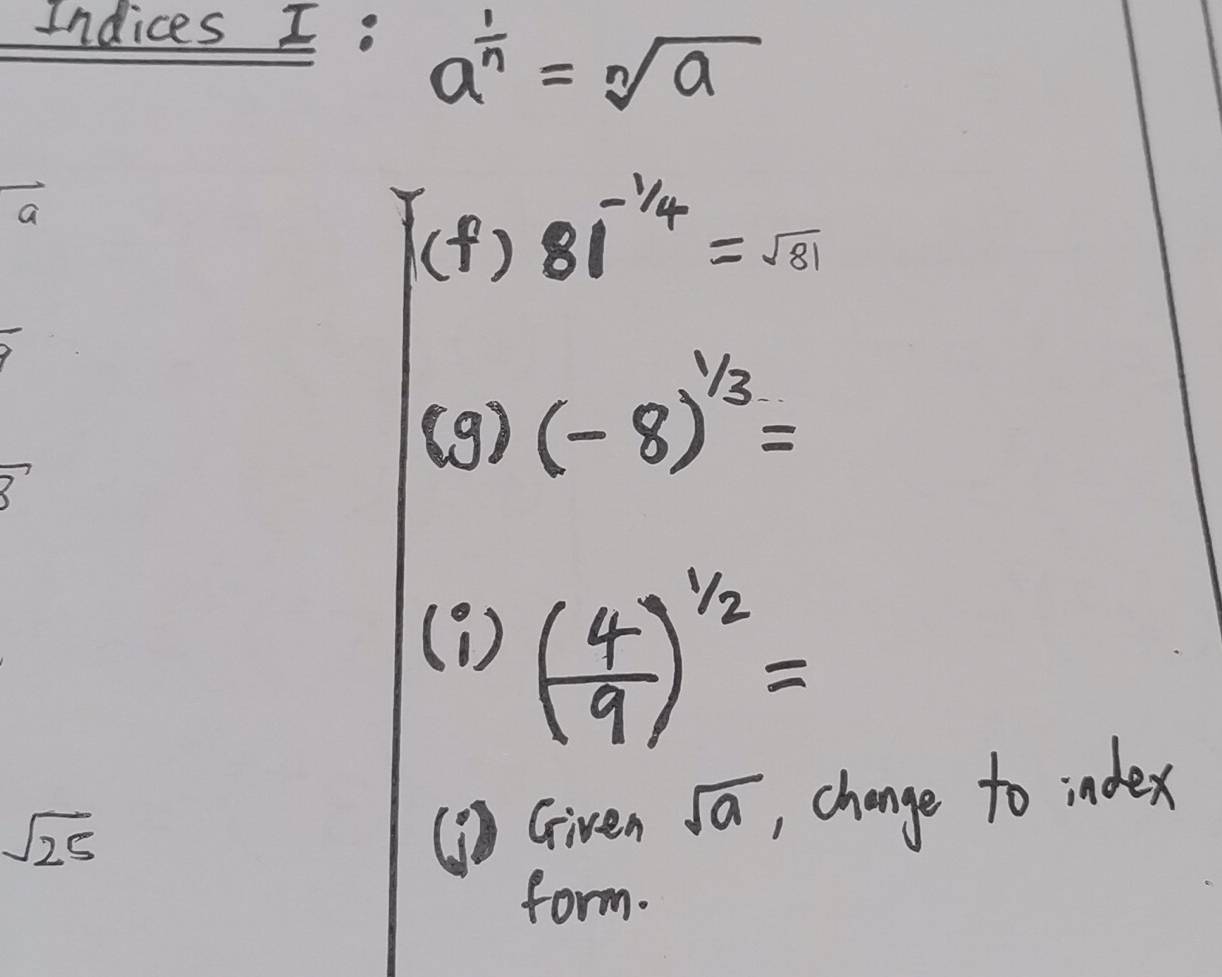 Indices I : a^(1/n) = ⁿ√a
√a
(f) 81^(-1/4) = √81
(g) (-8)^(1/3) =
(i) (4/9)^(1/2) =
√25
(j) Given √a, change to index
form.